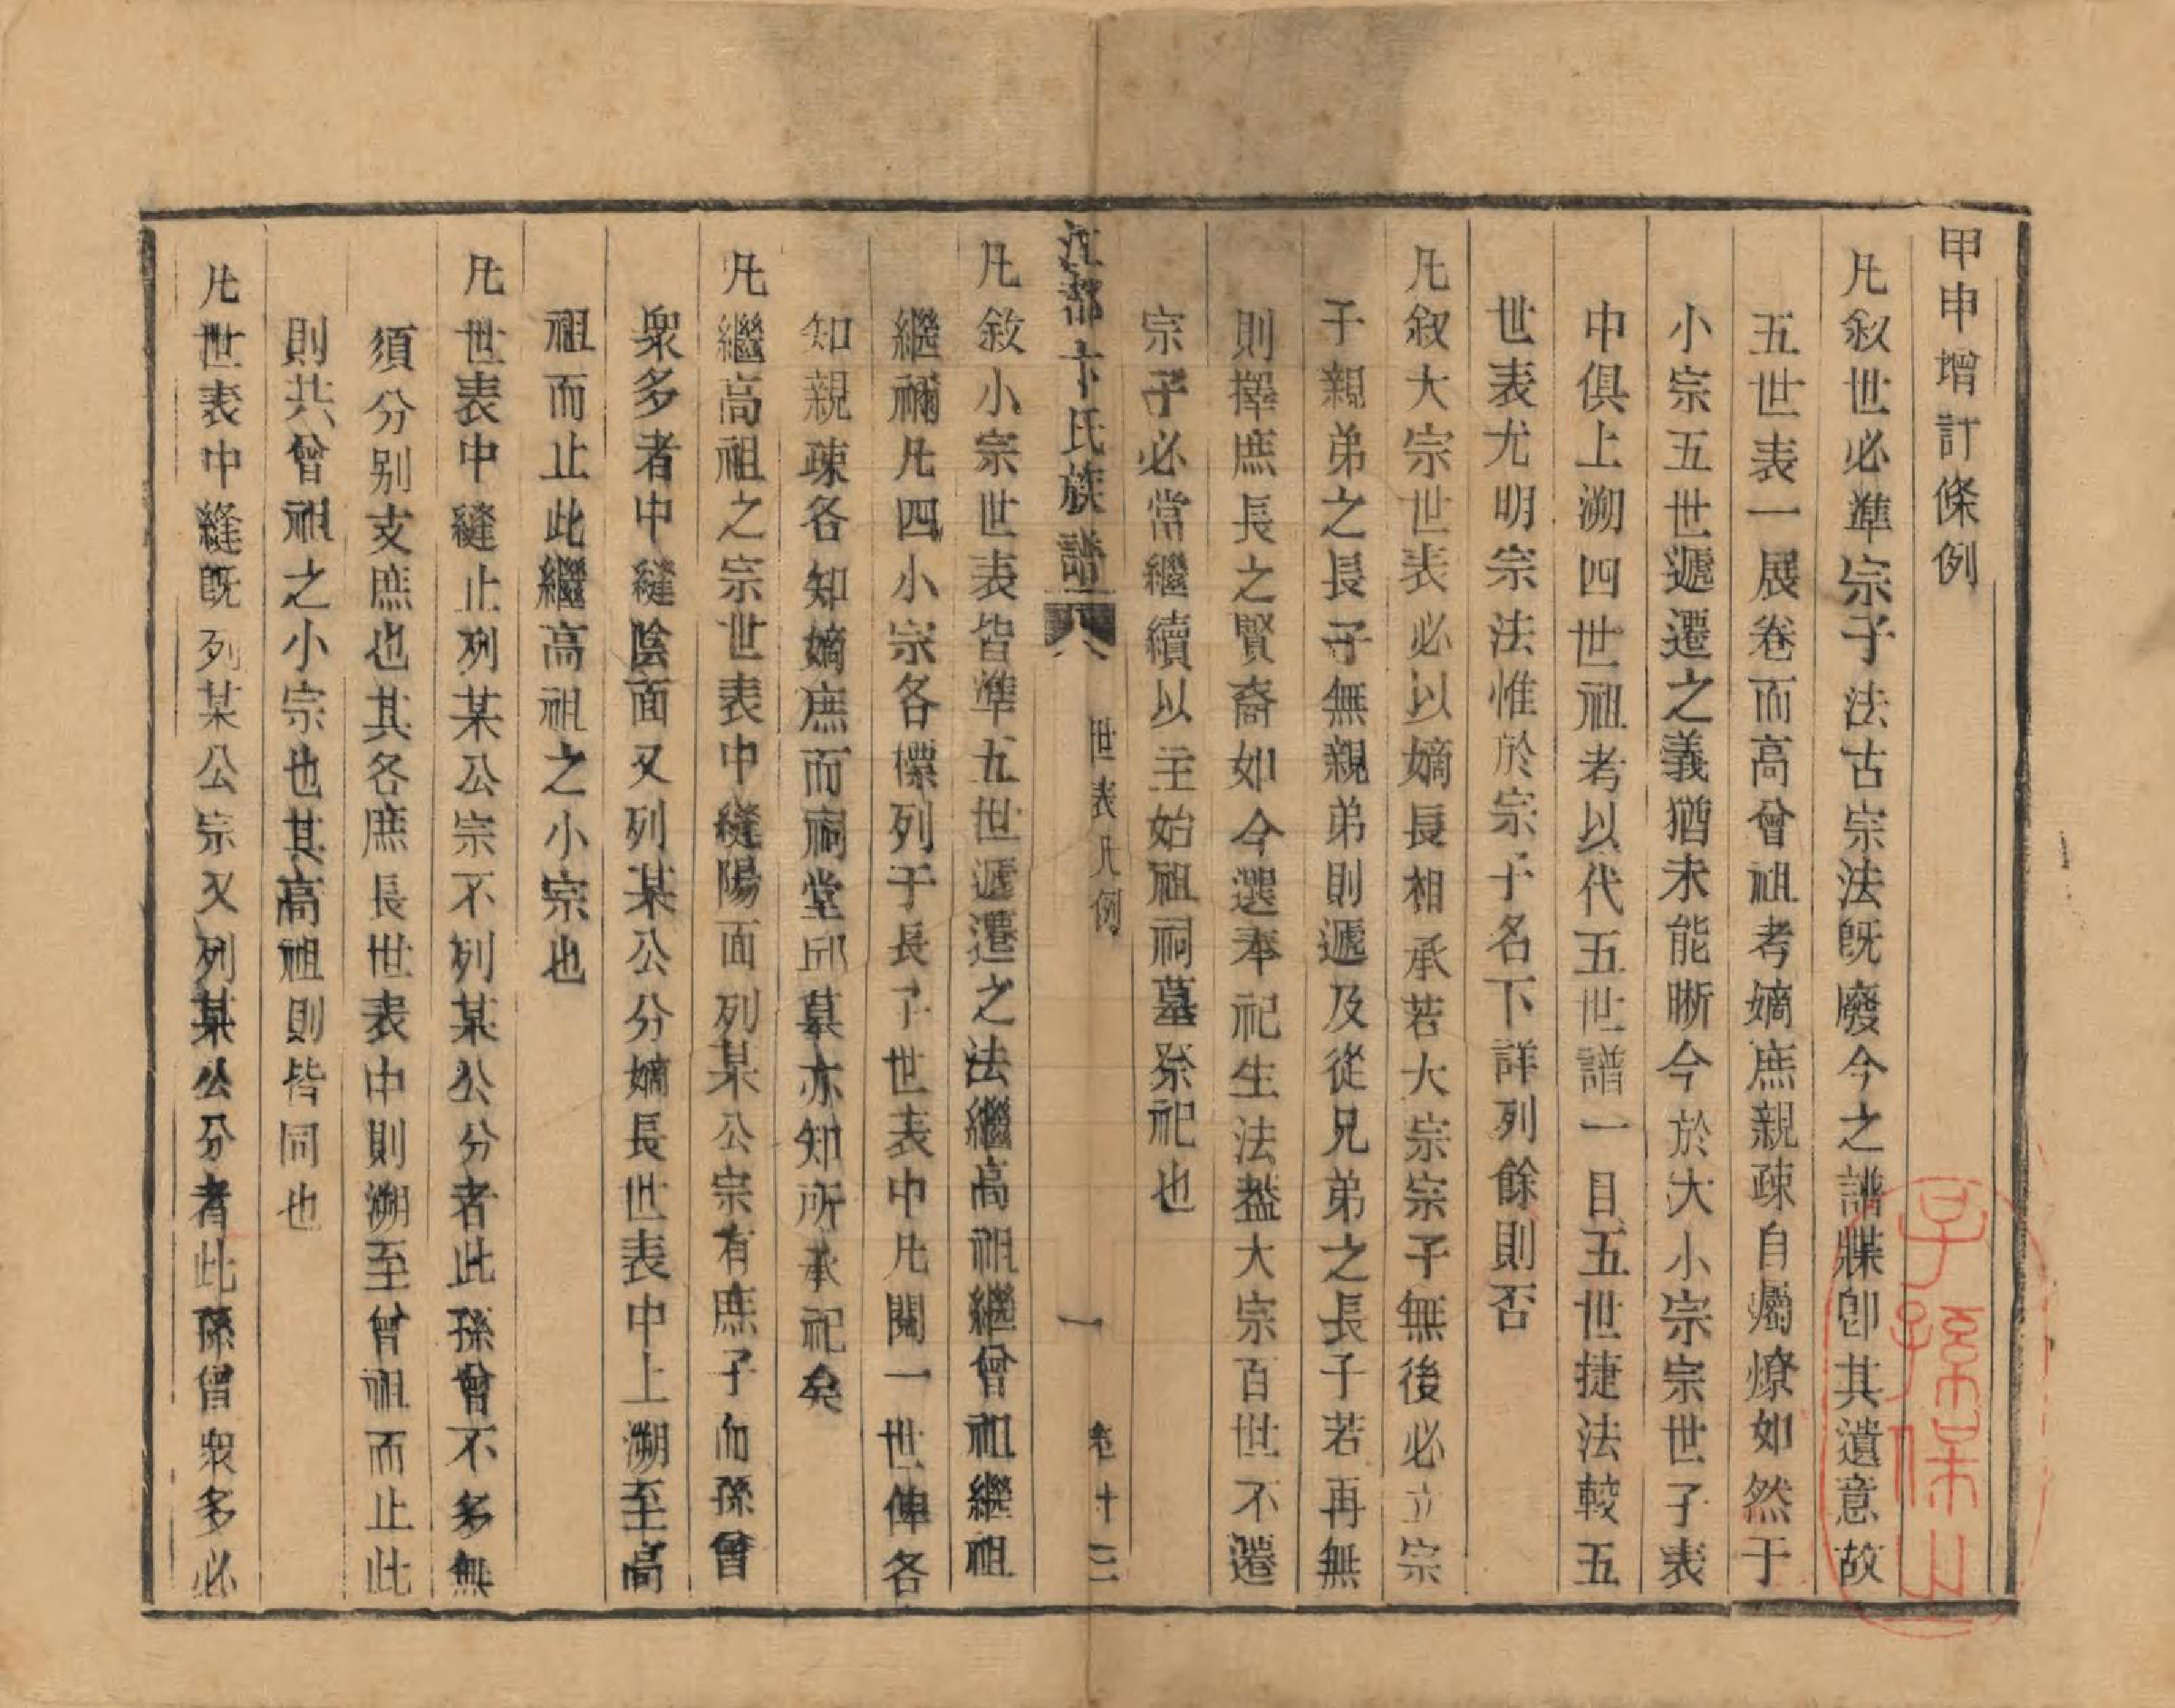 甲申增訂條例
凡敘世必準宗子法古宗法旣廢今之譜牒卽其遺意故
五世表一展卷而高曾祖考嫡庶親疎自屬燎如然于
小宗五世遞遷之義猶未能晰今於大小宗宗世子表
中俱上溯四世祖考以代五世譜一目五世捷法較五
世表尤明宗法惟於宗子名下詳列餘則否
凡叙大宗世表必以嫡長相承若大宗宗子無後必立宗
子親弟之長子無親弟則遞及從兄弟之長子若再無
則擇庶長之賢裔如今選奉祀生法蓋大宗百世不遷
宗子必當繼續以主始祖祠墓祭祀也
江都卞氏族譜 世表凡例 一 卷十三
凡敘小宗世表皆準五世遞遷之法繼高祖繼曾祖繼祖
繼禰凡四小宗各標列于長子世表中凡閱一世俾各
知親疎各知嫡庶而祠堂邱墓亦知所承祀矣
凡繼高祖之宗世表中縫陽面列某公宗有庶子而孫曾
衆多者中縫陰面又列某公分嫡長世表中上溯至高
祖而止此繼高祖之小宗也
凡世表中縫止列某公宗不列某公分者此孫曾不多無
須分別支庶也其各庶長世表中則溯至曾祖而止此
則共曾祖之小宗也其高祖則皆同也
凡世表中縫旣列某公宗又列某公分者此孫曾衆多必
子孫保之